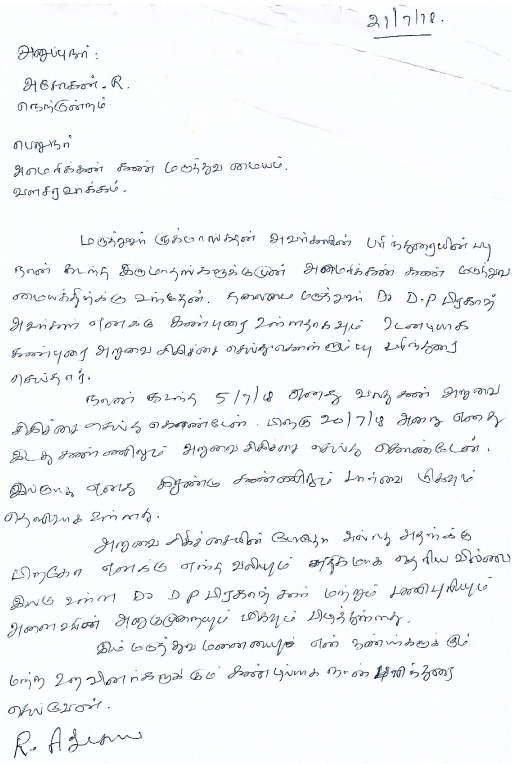 21/7/18.
அனுப்புநர்:
அசோகன்-R.
நெற்குன்றம்
பெறுநர்
அமெரிக்கன் கண் மருத்துவ மையம்.
வளசரவாக்கம்.
மருத்துவர் அவர்களின் பரிந்துரையின் படி
நான் கடந்த இருமாதங்களுக்குமுன் அமெரிக்கன் கண் மருத்துவ
மையத்திற்கு வந்தேன். தலைமை மருத்துவர் Dr D.P பிரகாஷ்
அவர்கள் எனக்கு கண்புரை உள்ளதாகவும் உடனடியாக
கண்புரை அறுவை சிகிச்சை செய்துகொள்ளும்படி பரிந்துரை
செய்தார்.
நான் கடந்த 5/7/18 எனது வலது கண் அறுவை
சிகிச்சை செய்து கொண்டேன். பிறகு 20/7/18 அன்று எனது
இடது கண்ணிலும் அறுவை சிகிச்சை செய்து கொண்டேன்.
இப்போது எனது இரண்டு கண்ணிலும் பார்வை மிகவும்
தெளிவாக உள்ளது.
அறுவை சிகிச்சையின் போதோ அல்லது அதற்கு
பிறகோ எனக்கு எந்த வலியும் அதிகமாக தெரிய வில்லை
இங்கு உள்ள Dr D P பிரகாஷ் சார் மற்றும் பணிபுரியும்
அனைவரின் அணுகுமுறையும் மிகவும் பிடித்துள்ளது.
இம் மருத்துவமனையை என் நண்பர்களுக்கும்
மற்ற உறவினர்களுக்கும் கண்டிப்பாக நான் பரிந்துரை
செய்வேன்.